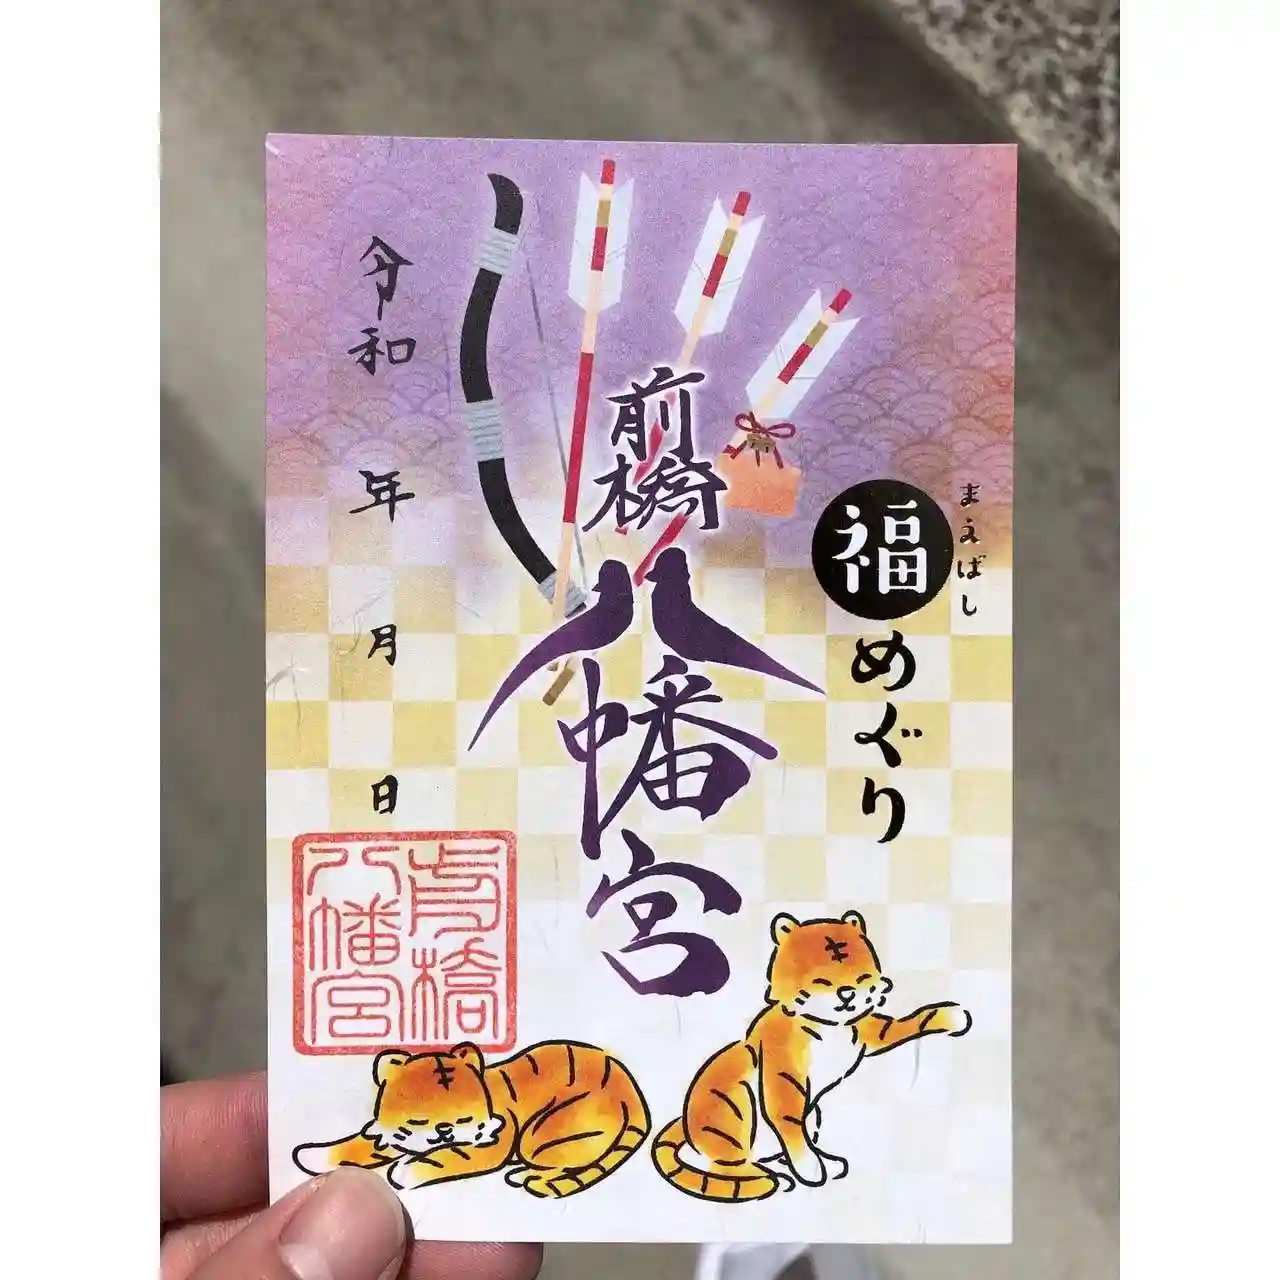 まえばし
福めぐり
前橋
八幡宮
令和 年 月 日
前橋
八幡宮